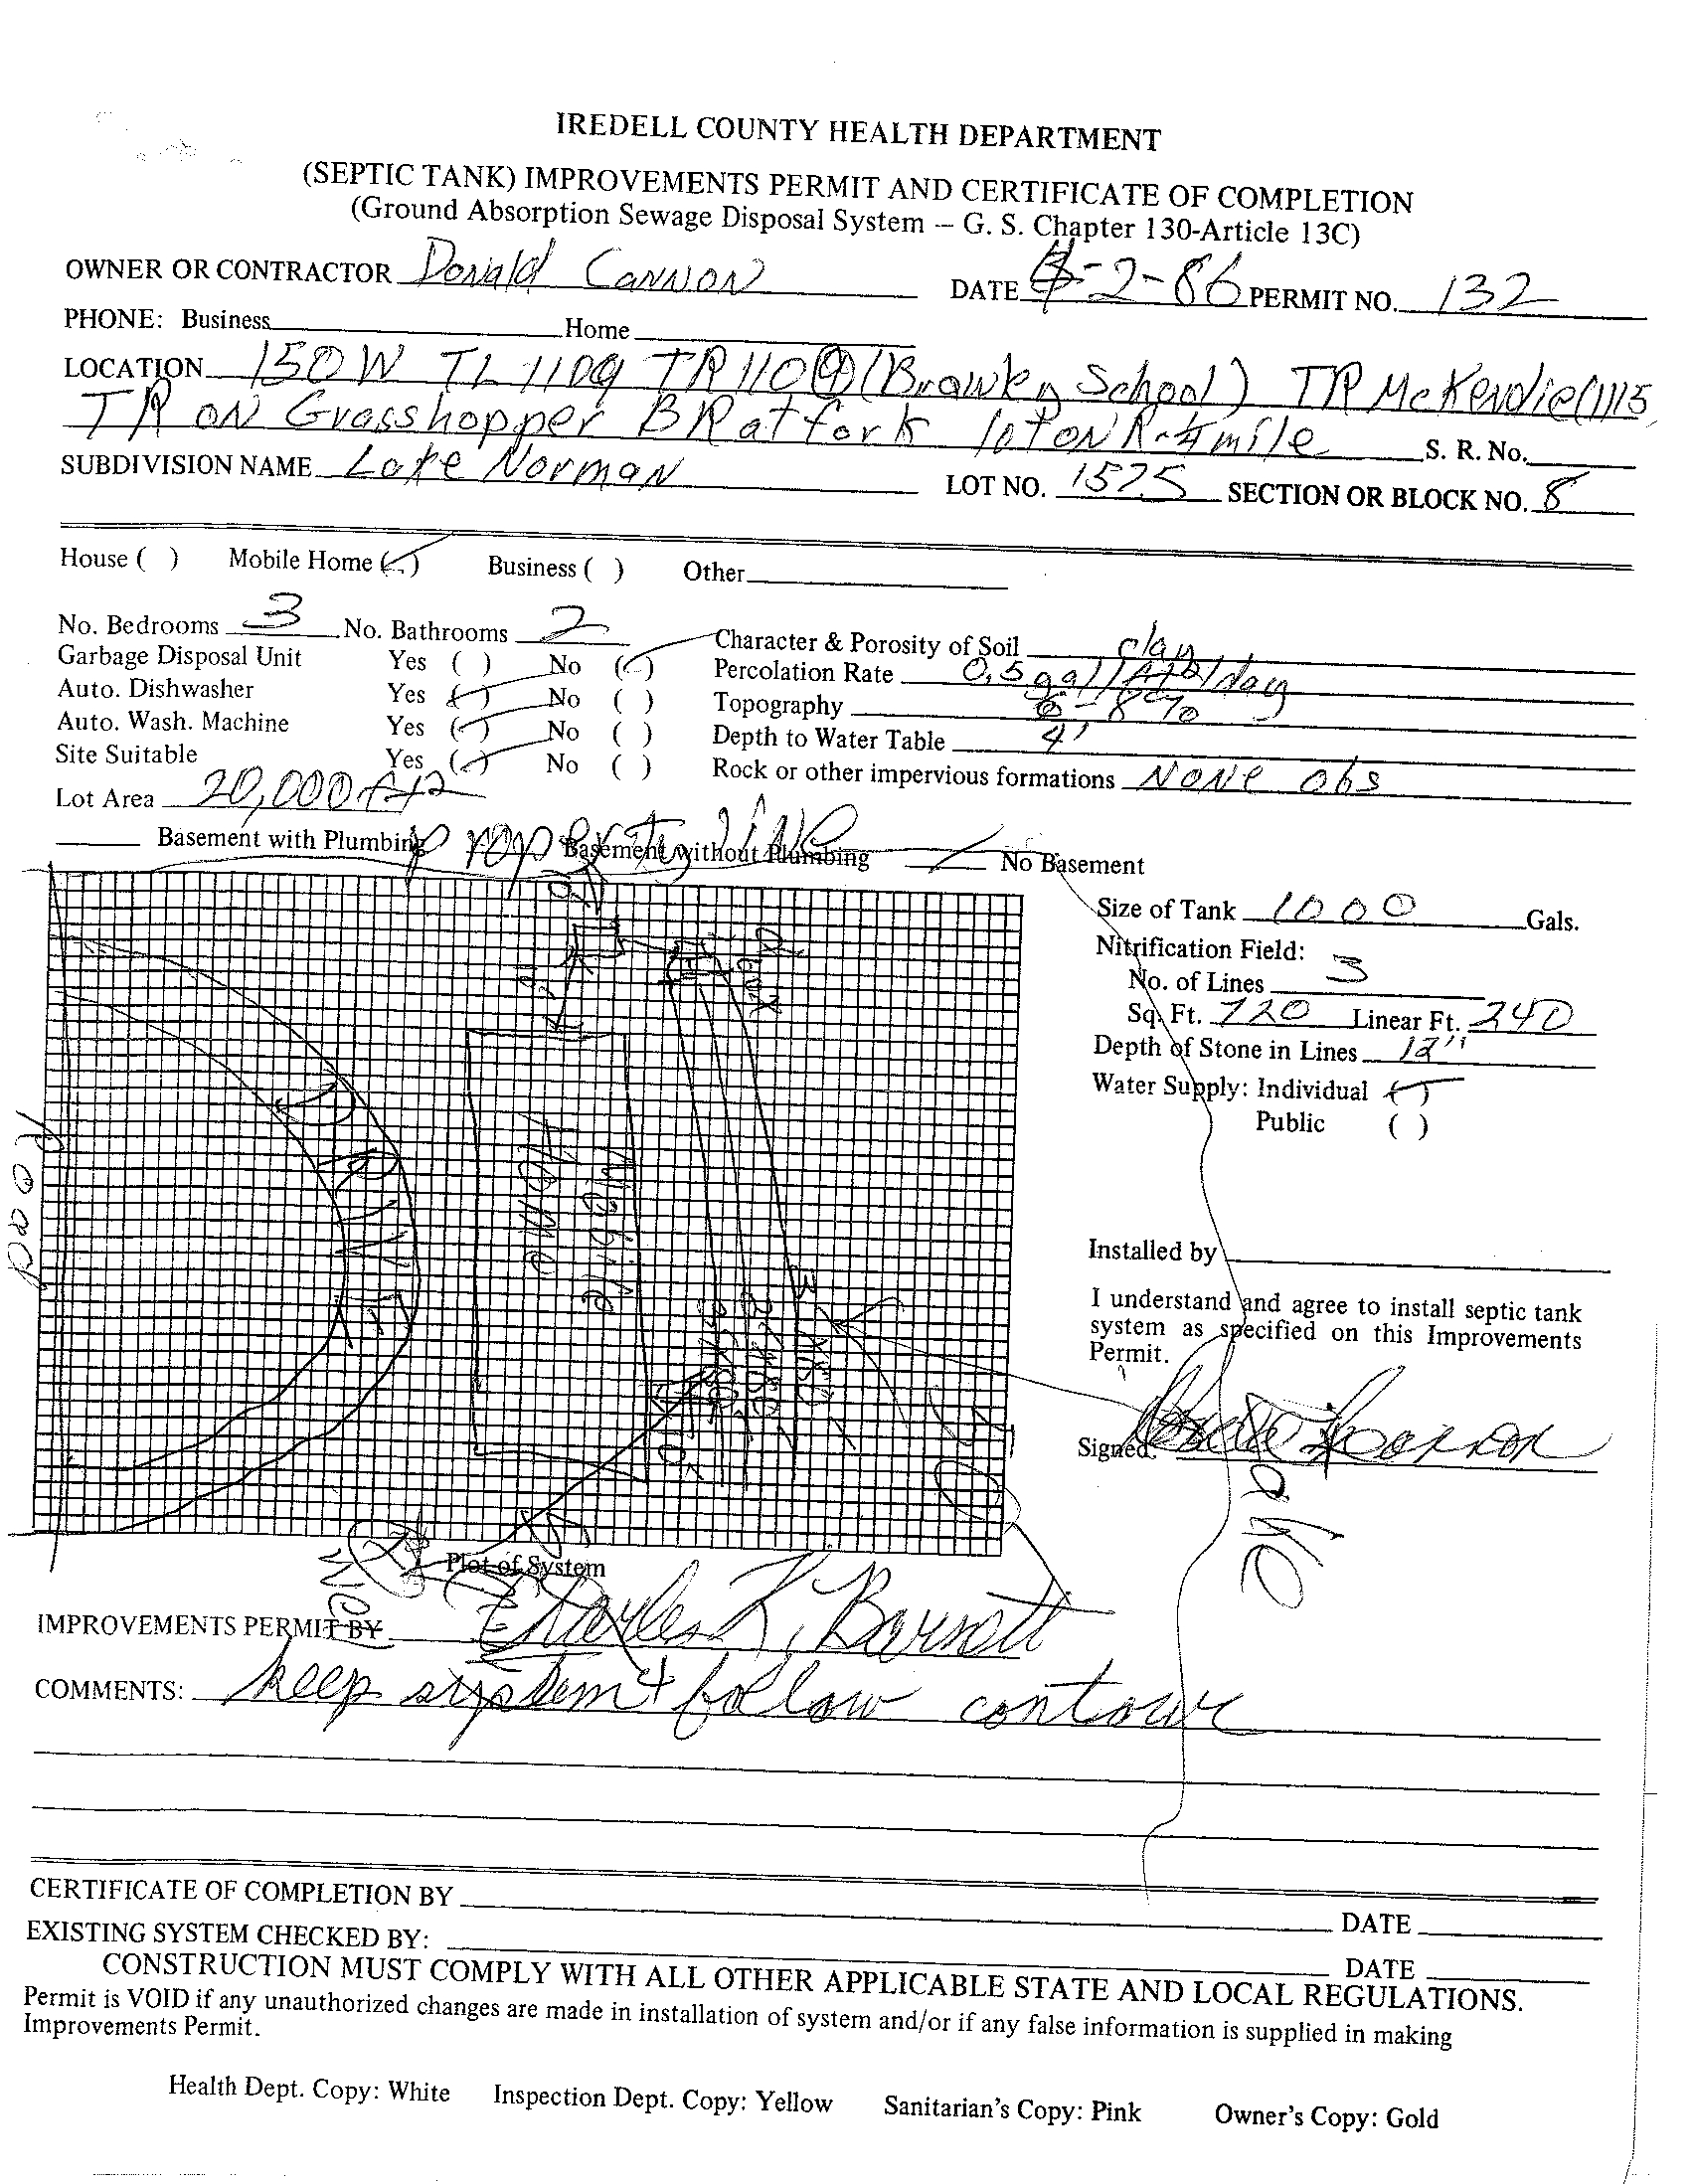 IREDELL COUNTY HEALTH DEPARTMENT
(SEPTIC TANK) IMPROVEMENTS PERMIT AND CERTIFICATE OF COMPLETION
(Ground Absorption Sewage Disposal System — G. S. Chapter 130-Article 13C)
OWNER OR CONTRACTOR Donald Cannon DATE 4-2-86 PERMIT NO. 132
PHONE: Business Home
LOCATION 150 W TL 1109 TR 1100 (Brawley School) TR McKendie (1115
TR ON Grasshopper BR at fork lot ON R .4 mile S. R. No.
SUBDIVISION NAME Lake Norman LOT NO. 1575 SECTION OR BLOCK NO. 8
House ( ) Mobile Home (✓) Business ( ) Other
No. Bedrooms 3 No. Bathrooms 2
Garbage Disposal Unit Yes ( ) No (✓)
Auto. Dishwasher Yes (✓) No ( )
Auto. Wash. Machine Yes (✓) No ( )
Site Suitable Yes (✓) No ( )
Lot Area 20,000 ft2
Character & Porosity of Soil clay
Percolation Rate 0.5 gal/ft2/day
Topography 6-8%
Depth to Water Table 4'
Rock or other impervious formations NONE obs
Basement with Plumbing Basement without Plumbing ✓ No Basement
property line
D box
Mobile
Home
Road
10'
Size of Tank 1000 Gals.
Nitrification Field:
No. of Lines 3
Sq. Ft. 720 Linear Ft. 240
Depth of Stone in Lines 12"
Water Supply: Individual (✓)
Public ( )
Installed by
I understand and agree to install septic tank
system as specified on this Improvements
Permit.
Signed
Plot of System
IMPROVEMENTS PERMIT BY Charles K. Barnett
COMMENTS: keep system + follow contour
CERTIFICATE OF COMPLETION BY DATE
EXISTING SYSTEM CHECKED BY: DATE
CONSTRUCTION MUST COMPLY WITH ALL OTHER APPLICABLE STATE AND LOCAL REGULATIONS.
Permit is VOID if any unauthorized changes are made in installation of system and/or if any false information is supplied in making
Improvements Permit.
Health Dept. Copy: White Inspection Dept. Copy: Yellow Sanitarian's Copy: Pink Owner's Copy: Gold